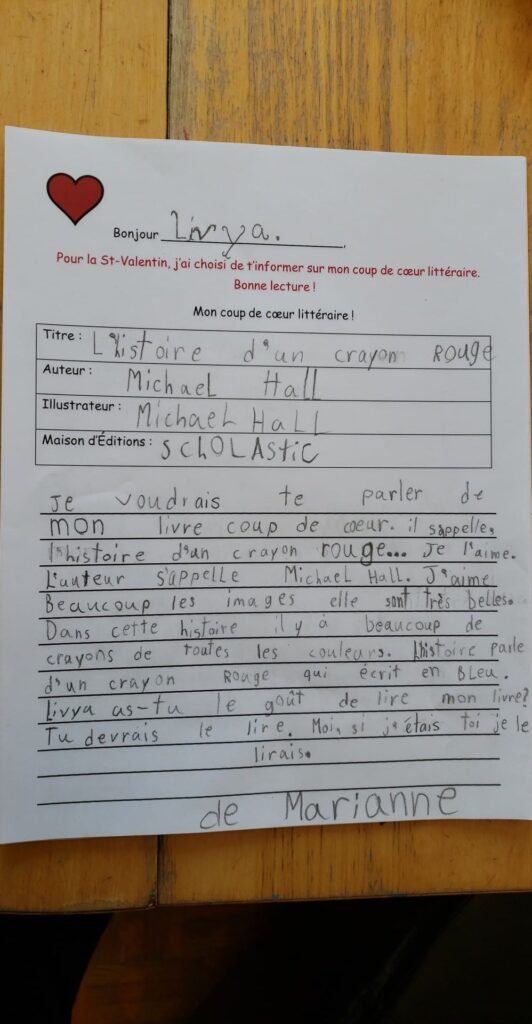 Bonjour Livya.
Pour la St-Valentin, j'ai choisi de t'informer sur mon coup de cœur littéraire.
Bonne lecture !
Mon coup de cœur littéraire !
Titre : L'histoire d'un crayon ROUGE
Auteur : Michael Hall
Illustrateur : MichaeL HaLL
Maison d'Éditions : ScHOLAStiC
Je voudrais te parler de
mon livre coup de cœur. il s'appelle,
l'histoire d'un crayon rouge... Je l'aime.
L'auteur s'appelle Michael Hall. J'aime
Beaucoup les images elle sont très belles.
Dans cette histoire il y à beaucoup de
crayons de toutes les couleurs. L'histoire parle
d'un crayon Rouge qui écrit en BLeu.
Livya as-tu le goût de lire mon livre?
Tu devrais le lire. Moi, si j'étais toi je le
lirais.
de Marianne